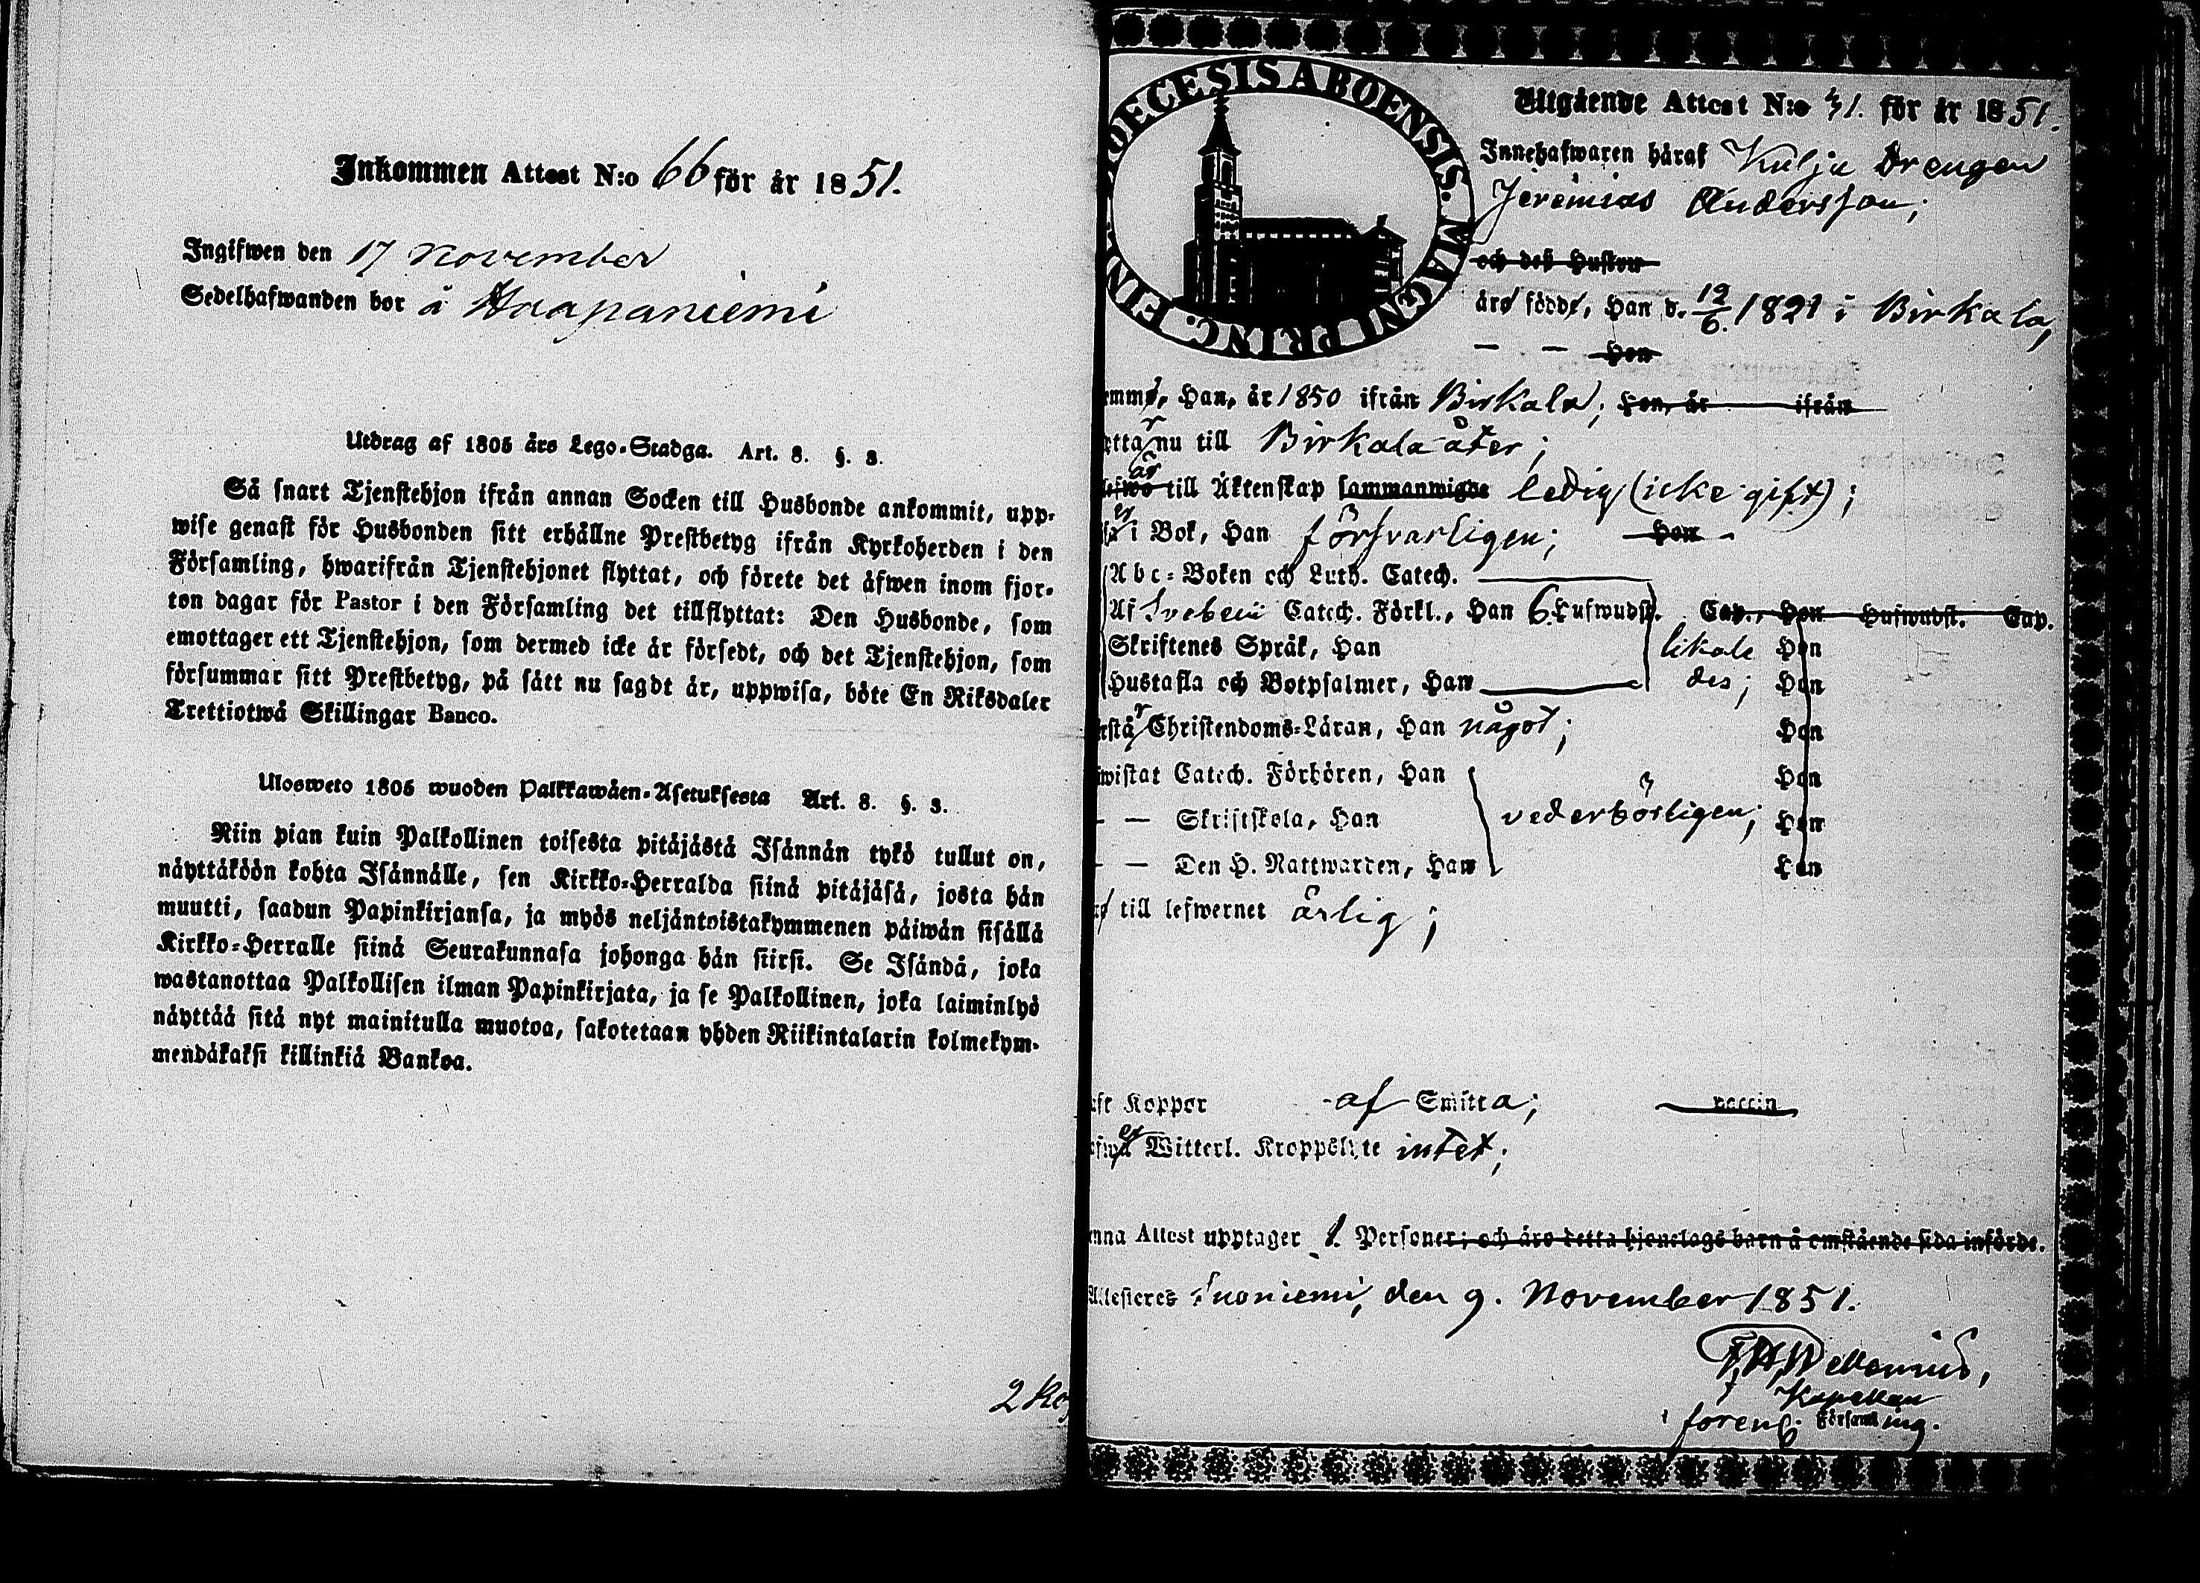 Inkommen Attest N:o 66 för år 1851.
Ingifwen den 17 November
Sedelhafwanden bor å Haapaniemi
Utdrag af 1805 års Lego-Stadga. Art. 8. §. 3.
Så snart Tjenstehjon ifrån annan Socken till Husbonde ankommit, upp-
wise genast för Husbonden sitt erhållne Prestbetyg ifrån Kyrkoherden i den
Församling, hwarifrån Tjenstehjonet flyttat, och förete det äfwen inom fjor-
ton dagar för Pastor i den Församling det tillflyttat: Den Husbonde, som
emottager ett Tjenstehjon, som dermed icke är försedt, och det Tjenstehjon, som
försummar sitt Prestbetyg, på sätt nu sagdt är, uppwisa, böte En Riksdaler
Trettiotwå Skillingar Banco.
Ulosweto 1805 wuoden Palkkawäen-Asetuksesta Art. 8. §. 3.
Niin pian kuin Palkollinen toisesta pitäjästä Isännän tykö tullut on,
näyttäköön kohta Isännälle, sen Kirkko-Herralda siinä pitäjäsä, josta hän
muutti, saadun Papinkirjansa, ja myös neljäntoistakymmenen päiwän sisällä
Kirkko-Herralle siinä Seurakunnasa johonga hän siirsi. Se Isändä, joka
wastanottaa Palkollisen ilman Papinkirjata, ja se Palkollinen, joka laiminlyö
näyttää sitä nyt mainitulla muotoa, sakotetaan yhden Riikintalarin kolmekym-
mendäkaksi killinkiä Bankoa.
2 Kop
DIOECESIS ABOENSIS. MAGNI PRINC. FIN
Utgående Attest N:o 31. för år 1851.
Innehafwaren häraf Kulju Drengen
Jeremias Andersson;
och deß Hustru
äro födde, Han d. 12/6. 1821 i Birkala,
— — Hon
emme, Han, år 1850 ifrån Birkala; Hon, år ifrån
ttar nu till Birkala åter;
lefwa är till Äktenskap sammanwigde ledig (icke gift);
er i Bok, Han försvarligen; Hon
Abc-Boken och Luth. Catech.
Af Svebelii Catech. Förkl., Han 6. Hufwudst. Cap., Hon Hufwudst. Cap.
Skriftenes Språk, Han likale Hon
Hustafla och Botpsalmer, Han des; Hon
rstår Christendoms-Läran, Han något; Hon
wistat Catech. Förhören, Han Hon
— — Skriftskola, Han vederbörligen; Hon
— — Den H. Nattwarden, Han Hon
till lefwernet ärlig;
ft Koppor af Smitta; vaccin
Witterl. Kroppslyte intet;
nna Attest upptager 1. Personer; och äro detta hjonelags barn å omstående sida införde.
Attesteres Suoniemi, den 9. November 1851.
Kapellan
i foren. Församling.